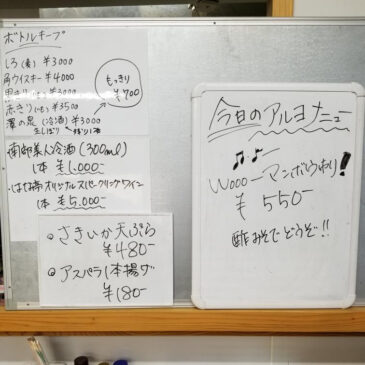 ボトルキープ
しろ(麦) ¥3000
角ウイスキー ¥4000
黒きり(〃) ¥3000
赤きり(〃) ¥3500
澤の泉(冷酒) ¥3000
生しぼり
もっきり
¥700
南部美人冷酒(300ml)
1本 ¥1,000-
オリジナルスパークリングワイン
1本 ¥5,000-
さきいか天ぷら
¥480-
アスパラ1本揚げ
¥180-
今日のアルヨメニュー
Wooo—マンボウわり!
¥550-
酢みそでどうぞ!!